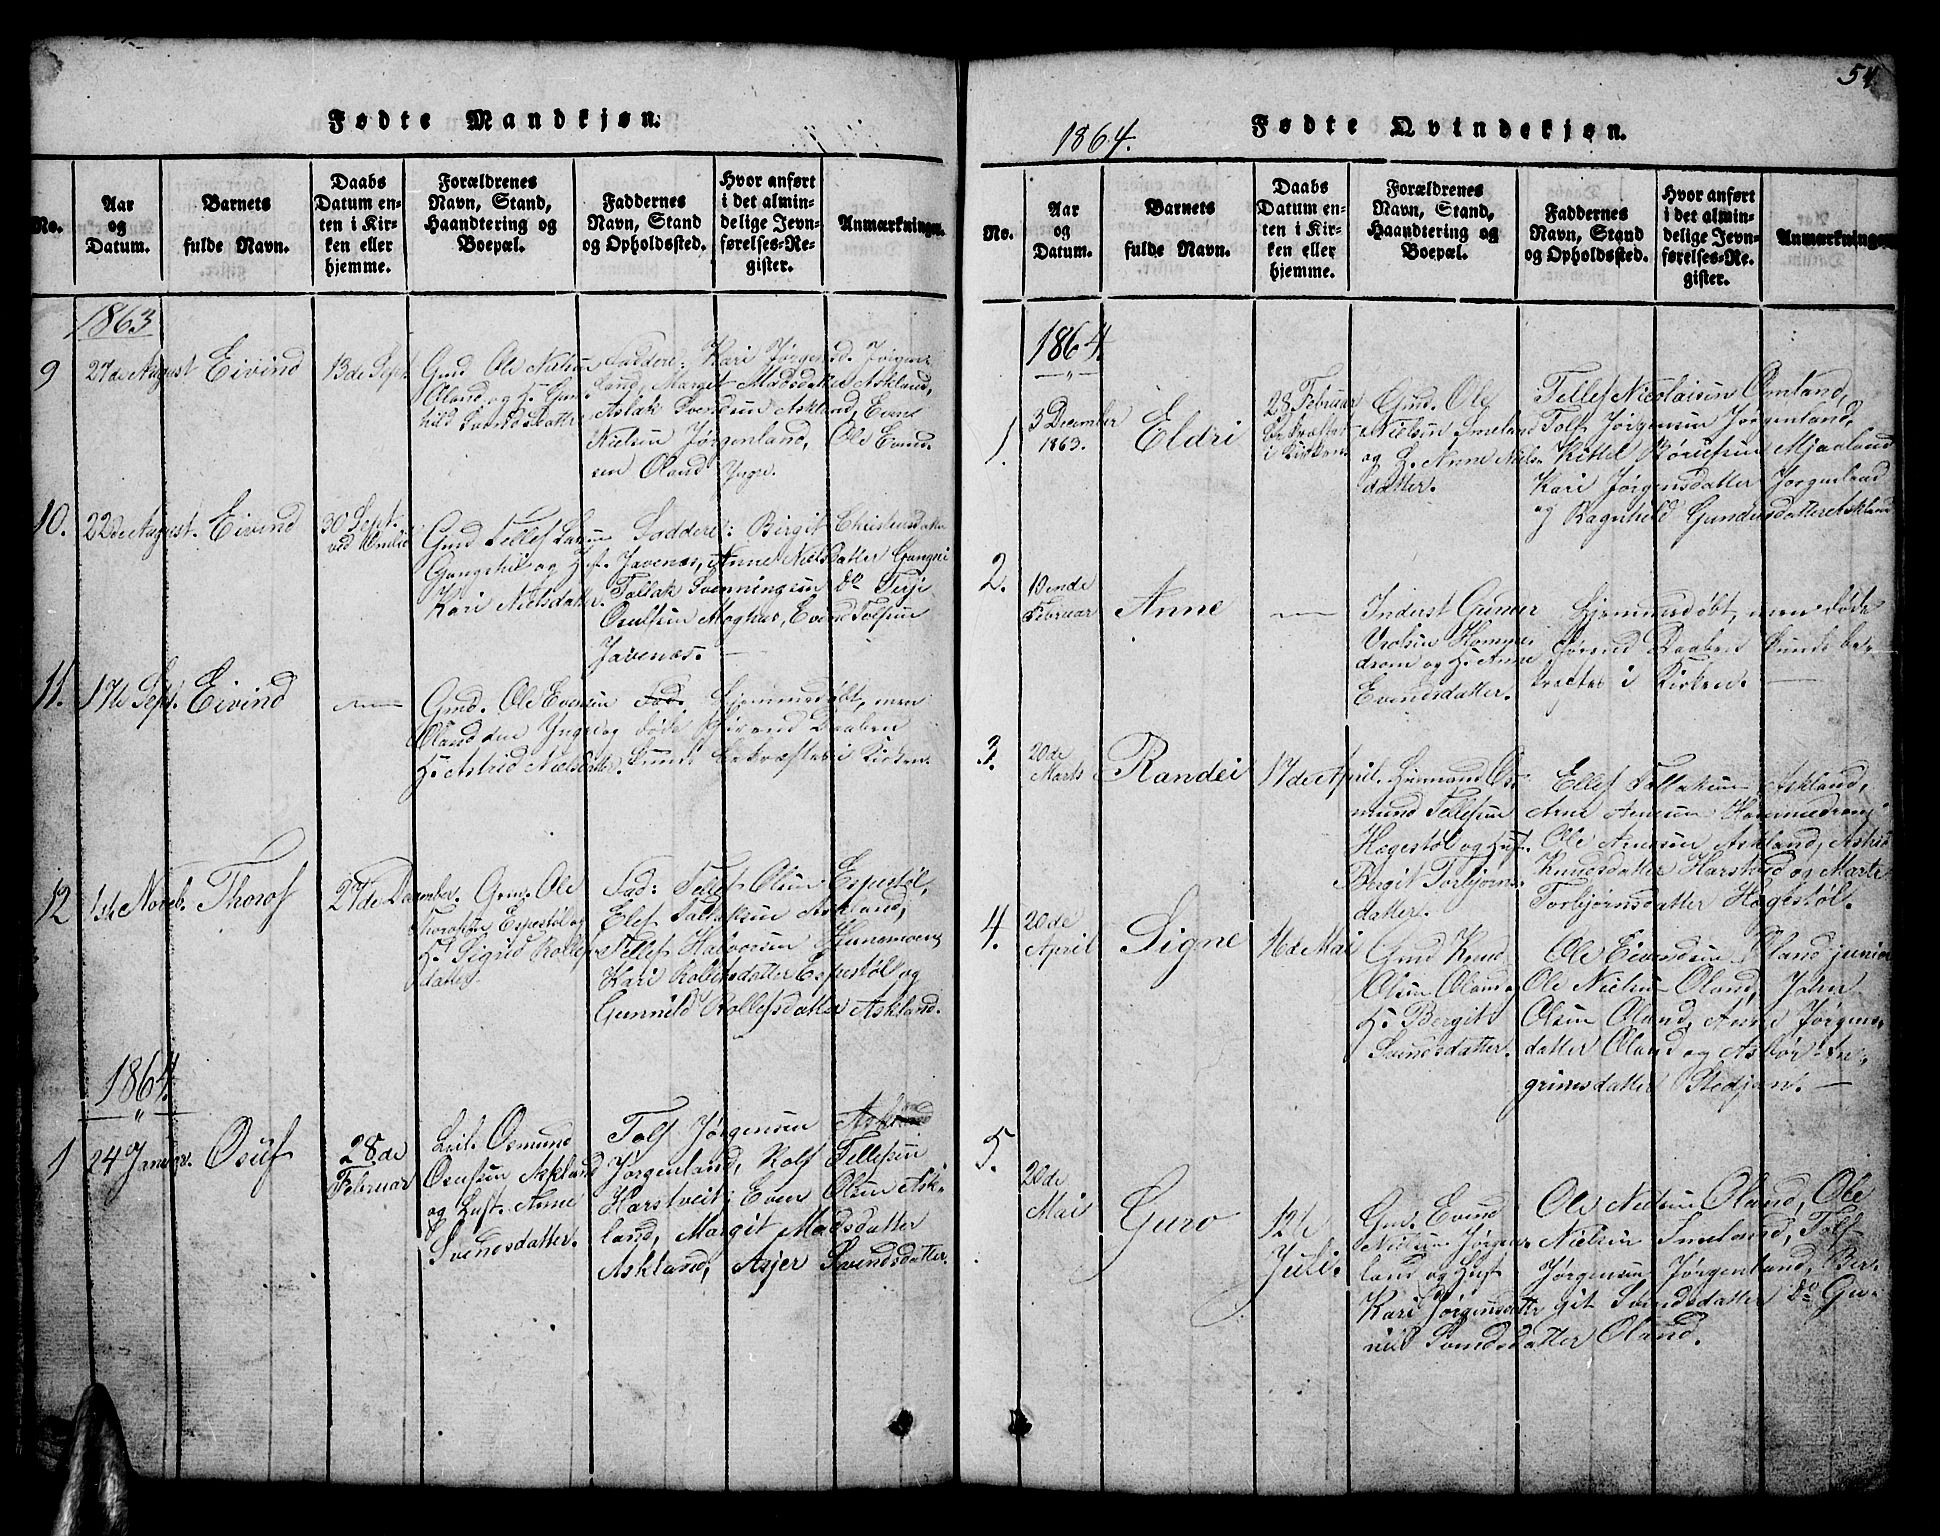 Fødte Mandkjøn.
No.
Aar
og
Datum.
Barnets
fulde Navn.
Daabs
Datum en-
ten i Kir-
ken eller
hjemme.
Forældrenes
Navn, Stand,
Haandtering og
Boepæl.
Faddernes
Navn, Stand
og Opholdssted.
Hvor anført
i det almin-
delige Jevn-
førelses-Re-
gister.
Anmærkninger.
1863
9
27de August
Eivind
13de Sept.
Gmd Ole Nielsen
Oland og H. Gun-
hild Svendsdatter
Faddere: Kari Jørgensd. Jørgen-
land, Margit Madsdatter Askland,
Aslak Svendsen Askland, Evend
Nielsen Jørgenland, Ole Evend-
sen Oland Yngr.
10.
22de August.
Eivind
30 Sept.
ved
Gmd Tellef
og Hust.
Kari Nielsdatter.
Faddere: Birgit Christensdatter
Javenæs, Anne Nielsdatter
Tallak Svenningsen do Terje
Osulfsen Evend Tolfsen
Javenæs.
11.
17de Sept.
Eivind
Gmd. Ole Evensen
Oland den Yngre og
H. Astrid Nielsdatter.
Fad. Hjemmedøbt, men
døde førend Daaben
kunde bekræftes i Kirken.
12
1ste Novb.
Thorof
27de December.
Grm. Ole
Thorofsen Espestøl og
H. Sigrid Rollefs-
datter
Fad: Tellef Olsen Espestøl,
Elef Tallaksen Askland,
Tellef Halvorsen
Kari Rollefsdatter Espestøl og
Gunnild Rollefsdatter Askland.
1864.
1
24 Januar.
Osuf
28de
Februar
Leil. Osmund
Osufsen Askland
og Hust. Anne
Svendsdatter.
Tolf Jørgensen Askland
Jørgenland, Rolf Tellefsen
Harstveit, Even Olsen Ask-
land, Margit Madsdatter
Askland, Asjer Svendsdatter.
54
1864.
Fødte Qvindekjøn.
No.
Aar
og
Datum.
Barnets
fulde Navn.
Daabs
Datum en-
ten i Kir-
ken eller
hjemme.
Forældrenes
Navn, Stand,
Haandtering og
Boepæl.
Faddernes
Navn, Stand
og Opholdssted.
Hvor anført
i det almin-
delige Jevn-
førelses-Re-
gister.
Anmærkninger.
1864
1.
3 December
1863.
Eldri
28 Februar
bekræftet
i Kirken
Gmd. Ole
Nielsen Smeland
og H. Anne Niels-
datter.
Tellef Nicolaisen Omland,
Tolf Jørgensen Jørgenland,
Kittel Mjaaland
Kari Jørgensdatter Jørgenland
og Ragnhild Gundersdatter Askland
2.
Februar
Anne
Inderst Gunner
Hommee-
drom og H. Anne
Evensdatter.
Hjemmedøbt, men døde
førend Daaben kunde be-
kræftes i Kirken.
3.
20de
Marts
Randei
17de April.
Huusmand Os-
mund Tellefsen
Hagestøl og Hust.
Bergit Torbjørns-
datter.
Ellef Tallaksen Askland,
Arne Arnesen Hommedrom,
Ole Arnesen Askland, Astrid
Knudsdatter Harstveid og Marte
Torbjørnsdatter Hagestøl.
4.
20de
April
Signe
16de Mai
Gmd Knud
Olsen Oland og
H. Bergit
Svendsdatter.
Ole Eivendsen Oland junior
Ole Nielsen Oland, John
Olsen Oland, Anne Jørgens-
datter Oland og
grimsdatter Stedjan.
5.
20de
Mai
Guro
12te
Juli.
Gm. Evend
Nielsen Jørgen-
land og Hust
Kari Jørgensdatter
Ole Nielsen Oland, Ole
Nielsen Smeland, Tolf
Jørgensen Jørgenland, Ber-
git Svendsdatter do Gu-
nild Svendsdatter Oland.